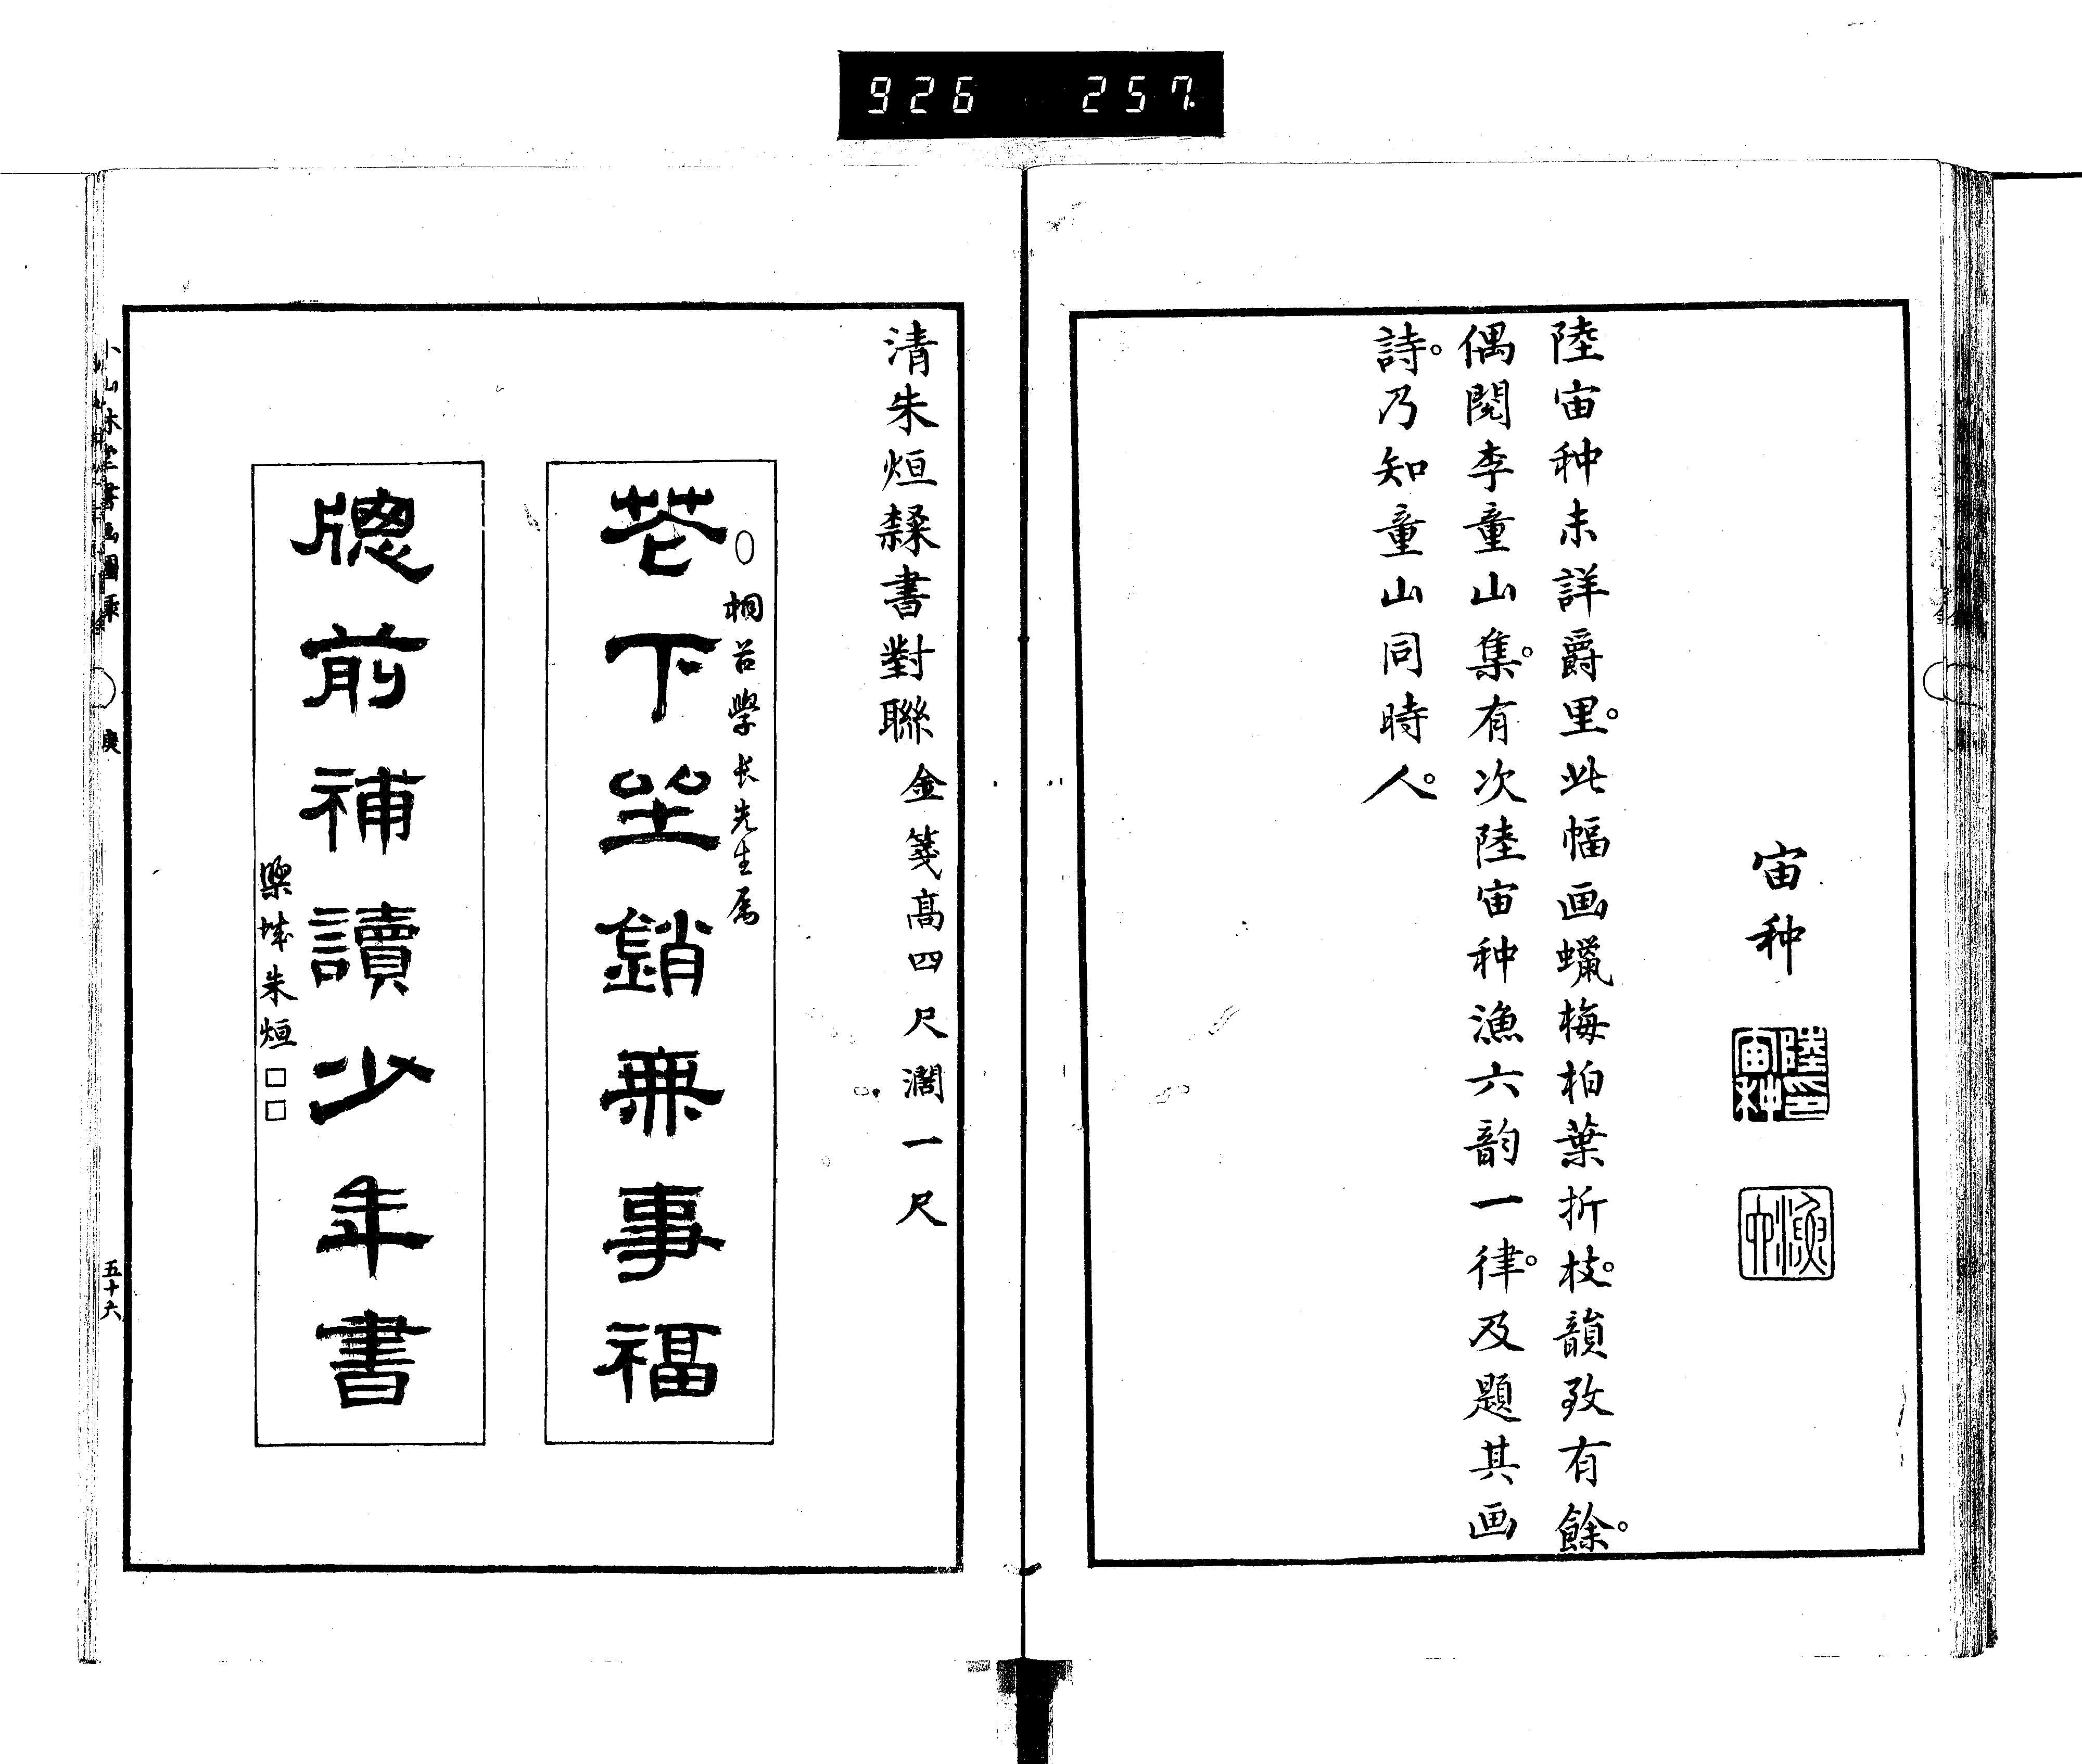 926 257
宙种
陸印宙种
漁中
陸宙种未詳爵里。此幅画蠟梅柏葉折枝。韻致有餘。
偶閱李童山集。有次陸宙种漁六韵一律。及題其画
詩。乃知童山同時人。
清朱烜隸書對聯 金箋高四尺濶一尺
桐谷學長先生属
花下坐銷無事福
牕前補讀少年書
樂城朱烜□□
小山林堂書画圖录
庚
五十六